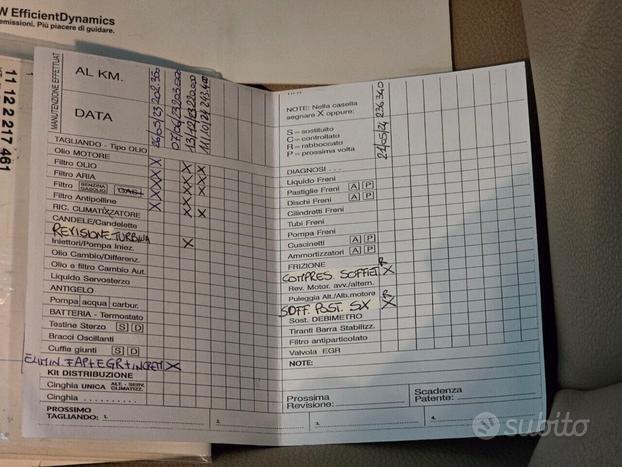 W EfficientDynamics
emissioni. Più piacere di guidare.
11 12 2 217 461
MANUTENZIONE EFFETTUAT.
AL KM.
DATA
26/05/23 202.350
07/06/23 203.000
13/12/23 220.000
11/10/24 243.400
TAGLIANDO - Tipo OLIO
Olio MOTORE
Filtro OLIO X
Filtro ARIA X X X X
Filtro BENZINA GASOLIO GAS X X X
Filtro Antipolline X X X X
RIC. CLIMATIZZATORE
CANDELE/Candelette
REVISIONE TURBINA
Iniettori/Pompa Iniez. X
Olio Cambio/Differenz.
Olio e filtro Cambio Aut.
Liquido Servosterzo
ANTIGELO
Pompa acqua carbur.
BATTERIA - Termostato
Testine Sterzo S D
Bracci Oscillanti
Cuffie giunti S D
ELIMIN. FAP+EGR+ X
KIT DISTRIBUZIONE
Cinghia UNICA ALT. - SERV. CLIMATIZZ.
Cinghia ..........
PROSSIMO
TAGLIANDO: 1. 2. 3. 4.
NOTE: Nella casella
segnare X oppure:
S = sostituito
C = controllato
R = rabboccato
P = prossima volta
21/05/24 236.340
DIAGNOSI ...
Liquido Freni
Pastiglie Freni A P
Dischi Freni A P
Cilindretti Freni
Tubi Freni
Pompa Freni
Cuscinetti A P
Ammortizzatori A P
FRIZIONE
COMPRES. SOFFIET. R X
Rev. Motor. avv./altern.
Puleggia Alt./Alb.motore
SOFF. POST. SX R X
Sost. DEBIMETRO
Tiranti Barra Stabilizz.
Filtro antiparticolato
Valvola EGR
NOTE:
Prossima
Revisione:
Scadenza
Patente:
subito